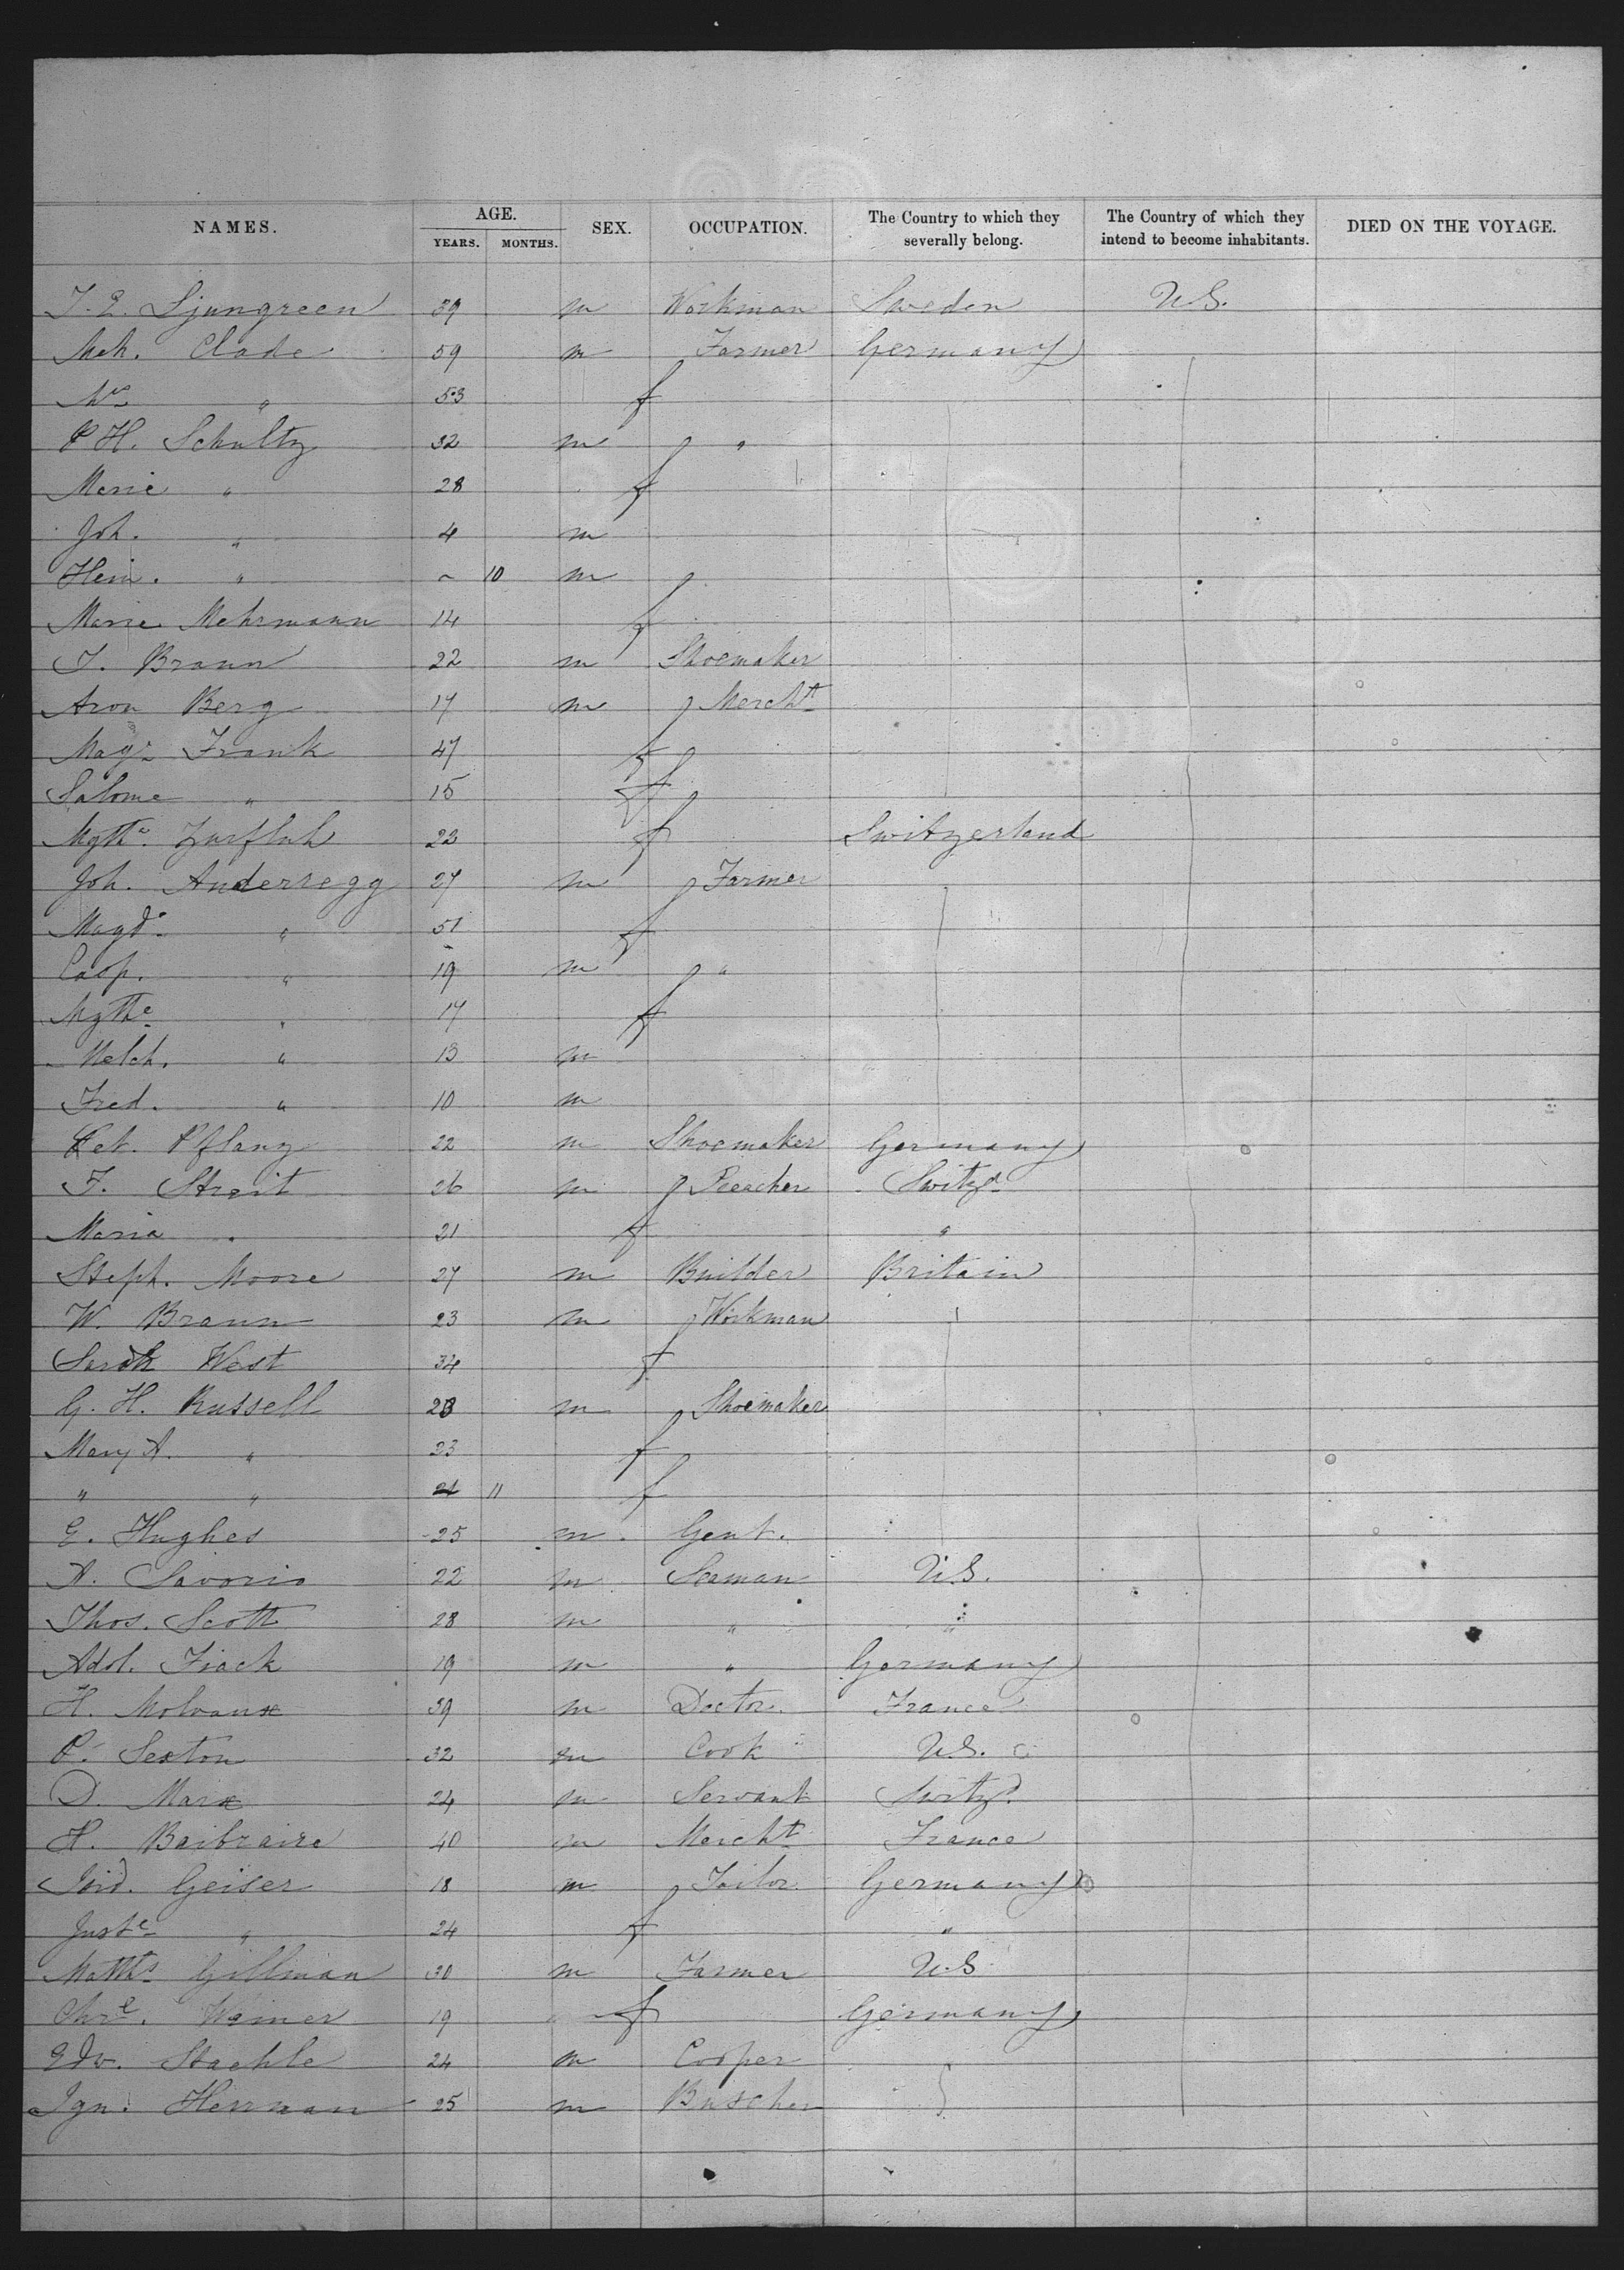 NAMES. AGE. YEARS. MONTHS. SEX. OCCUPATION. The Country to which they severally belong. The Country of which they intend to become inhabitants. DIED ON THE VOYAGE.
J. E. Ljungreen 39 m Workman Sweden U.S.
Mch. Clade 59 m Farmer Germany
Mrs " 53 f
P H. Schultz 32 m "
Marie " 28 f
Joh. " 4 m
Hein. " ~ 10 m
Marie Mehrmann 14 f
J. Braun 22 m Shoemaker
Aron Berg 17 m Mercht
Frank 47 f
Salome " 15 f
Mgthe Zurfluh 22 f Switzerland
Joh. Anderregg 27 m Farmer
Magd. " 51 f
Casp. " 19 m "
Mgthe " 17 f
Melch. " 13 m
Fred. " 10 m
Pet. Pflanz 22 m Shoemaker Germany
F. Streit 26 m Switzd
Maria " 21 f "
Steph. Moore 27 m Builder Britain
W. Braun 23 m Workman
Sarah West 34 f
G. H. Russell 23 m Shoemaker
Mary A. " 23 f
" " 11 f
E. Hughes 25 m Gent.
A. Savorio 22 m Seaman U.S.
Thos. Scott 28 m " "
Adol. Fiack 19 m " Germany
H. 39 m Doctor France
P. Sexton 32 m Cook U.S.
D. Marx 24 m Servant Switzd.
H. Baibraire 40 m Mercht France
Geiser 18 m Tailor Germany
Juste " 24 f "
Matths Gillman 30 m Farmer U.S
Chre. Weiner 19 f Germany
Edw. Staehle 24 m Cooper
Ign. Herrman 25 m Buscher